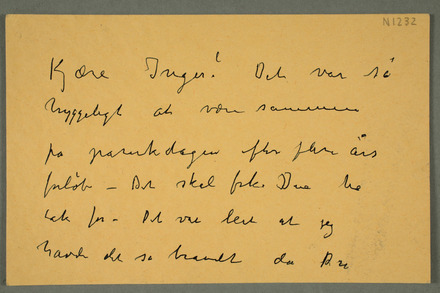 N1232
Kjære Inger! Det var så
hyggeligt at være sammen
på parentdagen efter flere års
forløb – Det skal De ha
tak for – Det var leit at jeg
havde det så travelt da De